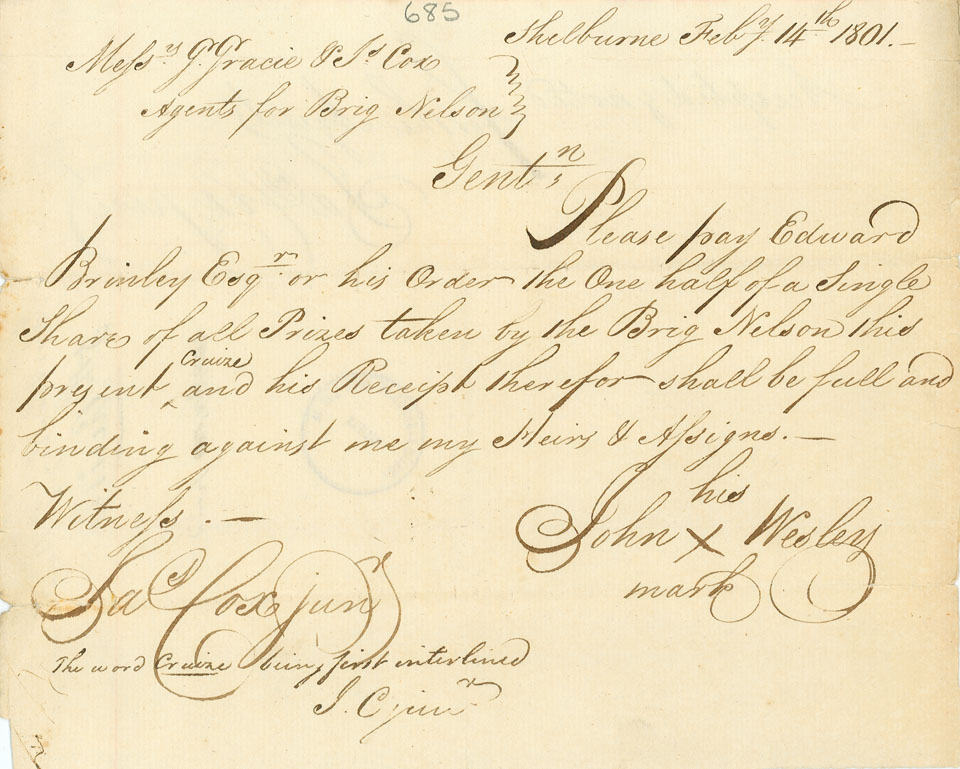 685
Shelburne Feby. 14th 1801.—
Messrs G. Gracie & Js Cox
Agents for Brig Nelson
Gentn,
Please pay Edward
Brinley Esqr. or his Order the One half of a Single
Share of all Prizes taken by the Brig Nelson this
Cruize
present ‸ and his Receipt therefor shall be full and
binding against me my Heirs & Assigns.—
Witness.—
his
John X Wesley
mark
Jas Cox junr
The word Cruize being first interlined
J. C junr